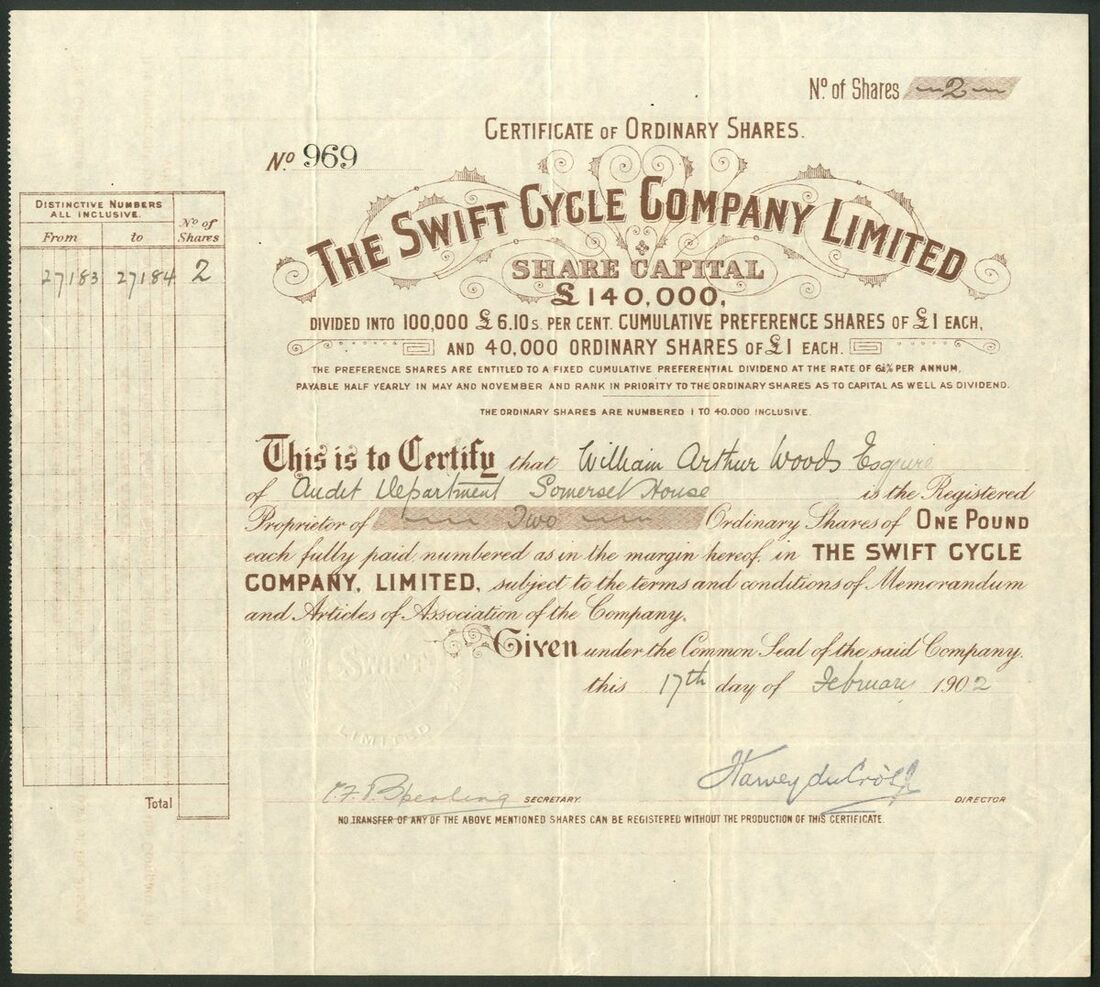 No. of Shares 2
CERTIFICATE OF ORDINARY SHARES.
No 969
THE SWIFT CYCLE COMPANY LIMITED
SHARE CAPITAL
£140,000,
DIVIDED INTO 100,000 £6.10s. PER CENT. CUMULATIVE PREFERENCE SHARES OF £1 EACH,
AND 40,000 ORDINARY SHARES OF £1 EACH.
THE PREFERENCE SHARES ARE ENTITLED TO A FIXED CUMULATIVE PREFERENTIAL DIVIDEND AT THE RATE OF 6½% PER ANNUM,
PAYABLE HALF YEARLY IN MAY AND NOVEMBER AND RANK IN PRIORITY TO THE ORDINARY SHARES AS TO CAPITAL AS WELL AS DIVIDEND.
THE ORDINARY SHARES ARE NUMBERED 1 TO 40.000 INCLUSIVE.
DISTINCTIVE NUMBERS
ALL INCLUSIVE.
No of Shares
From to
27183 27184 2
Total
This is to Certify that William Arthur Woods Esquire
of Audit Department Somerset House is the Registered
Proprietor of Two Ordinary Shares of ONE POUND
each fully paid, numbered as in the margin hereof, in THE SWIFT CYCLE
COMPANY, LIMITED, subject to the terms and conditions of Memorandum
and Articles of Association of the Company.
Given under the Common Seal of the said Company.
this 17th day of February 1902
SWIFT
LIMITED
Sperling SECRETARY.
Harvey du Cros Jr DIRECTOR
NO TRANSFER OF ANY OF THE ABOVE MENTIONED SHARES CAN BE REGISTERED WITHOUT THE PRODUCTION OF THIS CERTIFICATE.